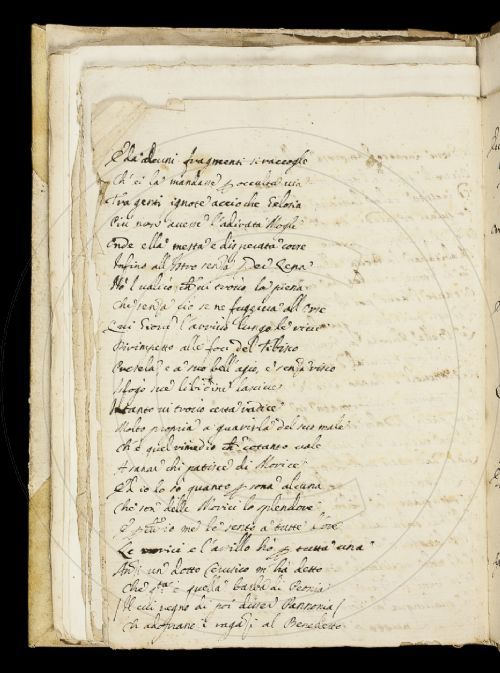 E da alcuni fragmenti si raccoglie
Ch'ei la mandasse p occulta via
Tra genti ignote accio che Gelosia
Più non avesse l'adirata Moglie
Onde ella mesta e disperata corse
Infino all'Istro senza Dei Lena
No'l valicò ch vi trovò la piena
Che senza ciò se ne fuggiva all'Orse
Qui Giove l'arrivò lungo le rive
Dirimpetto alle foci del Tibisco
Presela, e a suo bell'agio, e senza risco
Sfogò sue libidini lascive
Intanto vi trovò certa radice
Molto propria a guarirla del suo male
Ch'è quel rimedio ch cotanto vale
A sanar chi patisce di Morice
Ed io lo so quanto p sona alcuna
Che son delle Morici lo splendore
E io me le sento a tutte l'ore
Le morici e l'assillo ho p tutta una
Anzi un dotto Cerusico m'ha detto
Che qta è quella barba di Peonia
Il cui regno di poi dissesi Pannonia
Ch al Benedetto